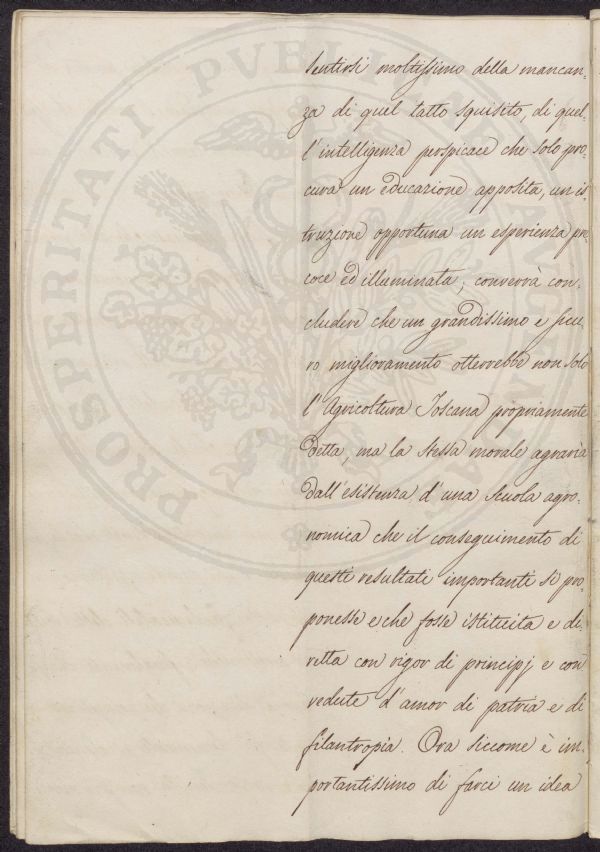 PROSPERITATI PVBLICAE AVGENDAE
sentirsi moltissimo della mancan-
za di quel tatto squisito, di quel-
l'intelligenza perspicace che solo pro-
cura un educazione apposita, un is-
truzione opportuna un esperienza pre-
coce ed illuminata, converrà con-
cludere che un grandissimo e sicu-
ro miglioramento otterrebbe non solo
l'Agricoltura Toscana propriamente
detta, ma la stessa morale agraria
dall'esistenza d'una Scuola agro-
nomica che il conseguimento di
questi resultati importanti si pro-
ponesse e che fosse istituita e di-
retta con rigor di principj e con
vedute d'amor di patria e di
filantropia. Ora siccome è im-
portantissimo di farci un idea